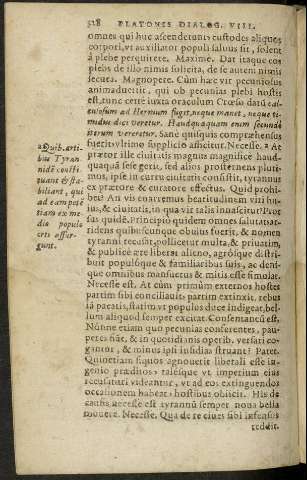 318 PLATONIS DIALOG. VIII.
omnes qui huc ascendunt: custodes aliquos
corpori, vt auxiliator populi saluus sit, solent
à plebe perquirere. Maxime. Dat itaque eos
plebs de illo nimis solicita, de se autem nimis
secura. Magnopere. Cùm hæc vir pecuniosus
animaduertit, qui ob pecunias plebi hostis
est, tunc certè iuxta oraculum Crœso datũ cal-
culosum ad Hermum fugit, neque manet, neque ti-
midus dici veretur. Haudquaquam enim secundò
iterum vereretur. Sanè quisquis compræhensus
fuerit, vltimo supplicio afficitur. Necesse. At
prætor ille ciuitatis magnus magnifice haud-
quaquã sese gerit, sed alios prosternens pluri-
mos, ipse in curru ciuitatis consistit, tyrannus
ex prætore & curatore effectus. Quid prohi-
bet? An vis enarremus beatitudinem viri hu-
ius, & ciuitatis, in qua vir talis innascitur? Pror
sus quidẽ. Principio quidem omnes salutat ar-
ridens quibuscunque obuius fuerit, & nomen
tyranni recusat, pollicetur multa, & priuatim,
& publicè ære liberat alieno, agrósque distri-
buit populóque & familiaribus suis, ac deni-
que omnibus mansuetus & mitis esse simulat.
Necesse est. At cùm primùm externos hostes
partim sibi conciliauit, partim extinxit, rebus
iã pacatis, statim vt populus duce indigeat, bel-
lum aliquod semper excitat. Consentaneũ est.
Nónne etiam quo pecunias conferentes, pau-
peres fiãt, & in quotidianis operib. versari co-
gantur, & minus ipsi insidias struant? Patet.
Quinetiam si quos agnouerit liberali esse in-
genio præditos, talésque vt imperium eius
recusaturi videantur, vt ad eos extinguendos
occasionem habeat, hostibus obiicit. His de
causis necesse est tyrannũ semper noua bella
mouere. Necesse. Qua de re ciues sibi infensos
reddit.
Quib. arti-
bus Tyran-
nidẽ consti-
tuant & sta-
biliant, qui
ad eam potẽ
tiam ex me-
dio populo
ortu assur-
gunt.